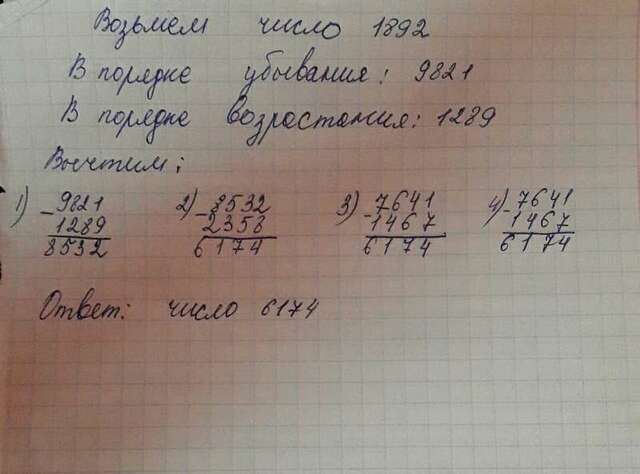 Возьмем число 1892
В порядке убывания: 9821
В порядке возрастания: 1289
Вычтим:
1) 9821 2) 8532 3) 7641 4) 7641
- 1289 - 2358 - 1467 - 1467
8532 6174 6174 6174
Ответ: число 6174